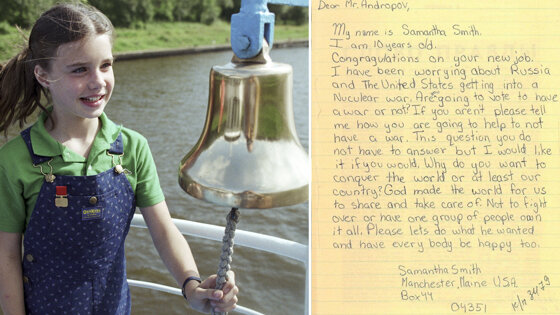 Dear Mr. Andropov,
My name is Samantha Smith.
I am 10 years old.
Congragulations on your new job.
I have been worrying about Russia
and The United States getting into a
Nuculear war. Are going to vote to have
a war or not? If you aren't please tell
me how you are going to help to not
have a war. This question you do
not have to answer but I would like
it if you would. Why do you want to
conquer the world or at least our
country? God made the world for us
to share and take care of. Not to fight
over or have one group of people own
it all. Please lets do what he wanted
and have every body be happy too.
Samantha Smith
Manchester, Maine U.S.A.
Box 44
04351